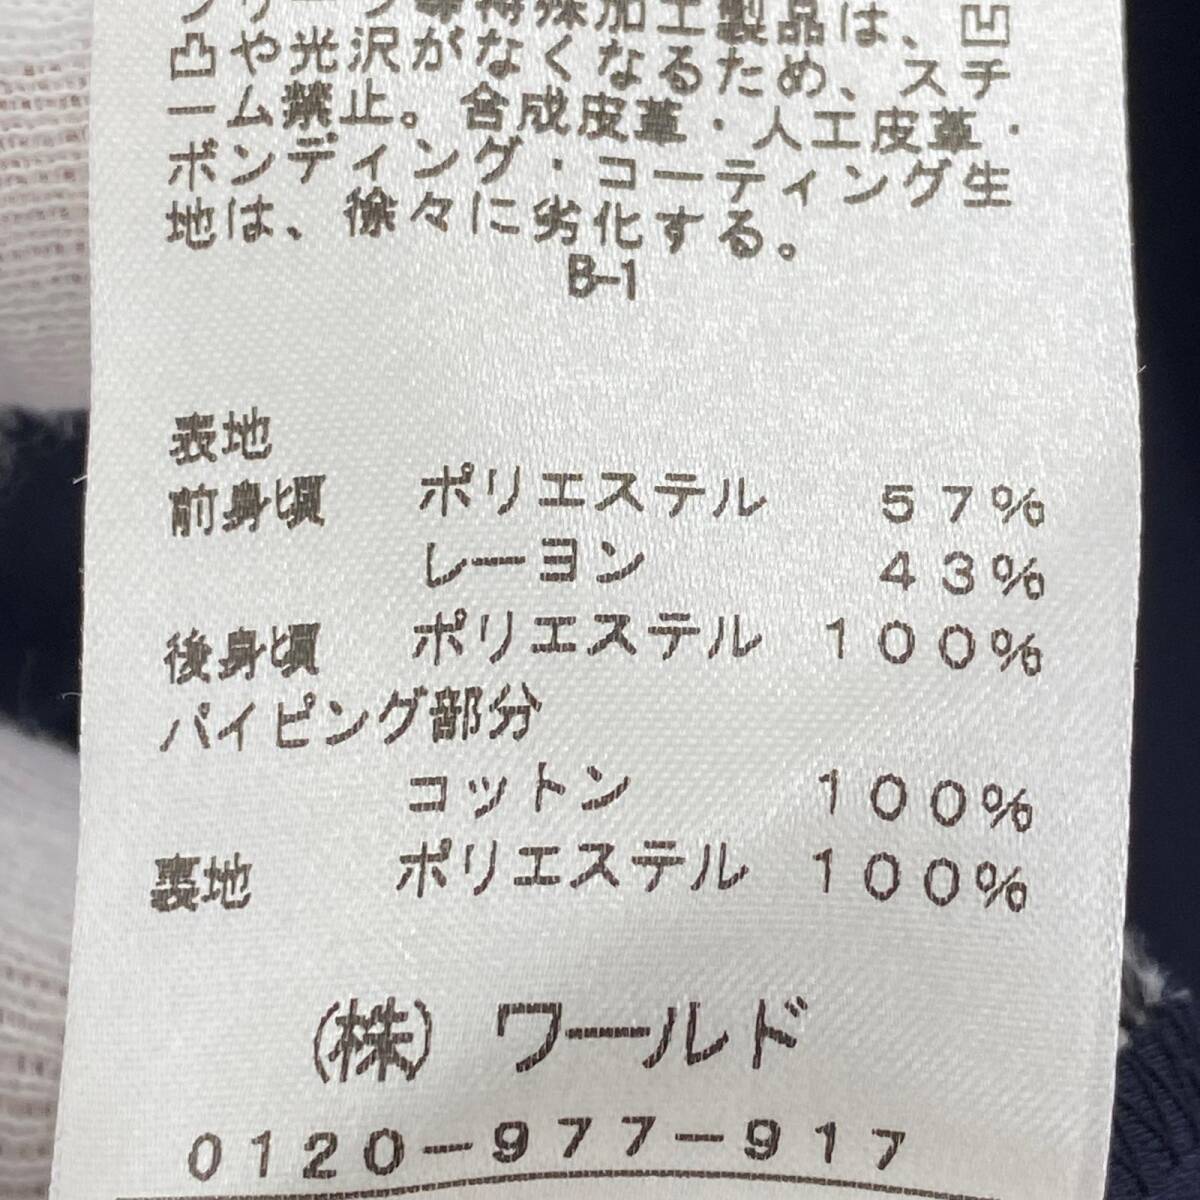 プリーツ等特殊加工製品は、凹
凸や光沢がなくなるため、スチ
ーム禁止。合成皮革・人工皮革・
ボンディング・コーティング生
地は、徐々に劣化する。
B-1
表地
前身頃 ポリエステル 57%
レーヨン 43%
後身頃 ポリエステル 100%
パイピング部分
コットン 100%
裏地 ポリエステル 100%
(株) ワールド
0120-977-917